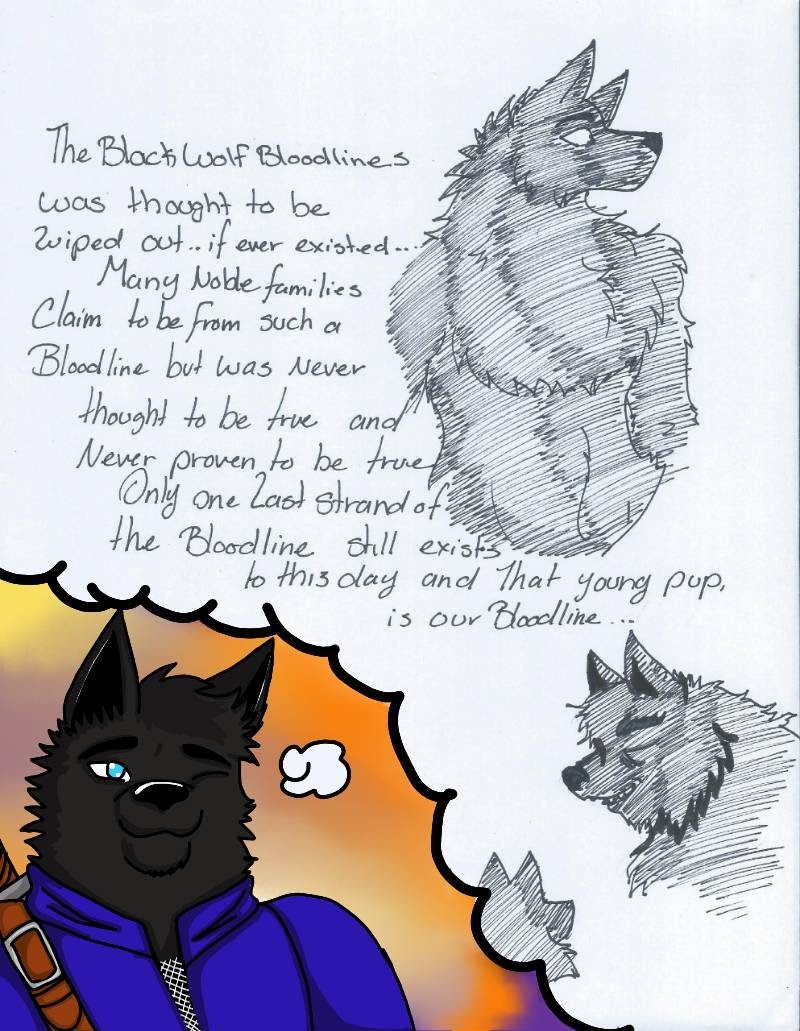 The Black Wolf Bloodlines
was thought to be
wiped out.. if ever existed...
Many Noble families
Claim to be from such a
Bloodline but was Never
thought to be true and
Never proven to be true
Only one Last strand of
the Bloodline still exists
to this day and That young pup,
is our Bloodline...